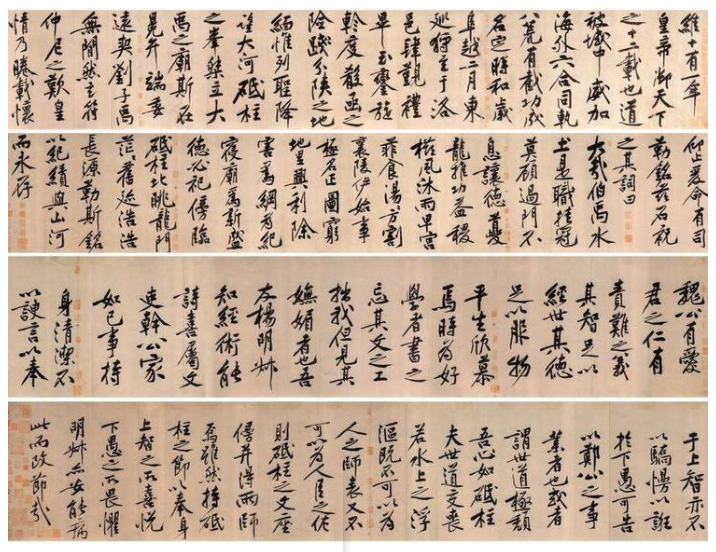 維十有一年
皇帝御天下
之十二載也道
被域中威加
海外六合同軌
八荒有截功成
名定時和歲
阜越二月東
巡狩至于洛
邑肆覲禮
畢玉鑾旋
軫度殽函之
險踐分陝之地
緬惟列聖降
望大河砥柱
之峯桀立大
禹之廟斯在
冕弁端委
遠爽劉子禹
無間然玄符
仲尼之歎皇
情乃睠載懷
仰止爰命有司
勒銘茲石祝
之其詞曰
大哉伯禹水
土是職挂冠
莫顧過門不
息讓德夔
龍推功益稷
櫛風沐雨卑宮
菲食湯方割
襄陵伊始事
極名正圖窮
地里興利除
害為綱為紀
寢廟為新盛
德必祀傍臨
砥柱北眺龍門
茫茫舊迹浩浩
長源勒斯銘
以紀績與山河
而永存
魏公有愛
君之仁有
責難之義
其智足以
經世其德
足以服物
平生欣慕
焉時為好
學者書之
忘其文之工
拙我但見其
嫵媚者也吾
友楊明叔
知經術能
詩善屬文
吏幹公家
如己事持
身清潔不
以諛言以奉
于上智亦不
以驕慢以誑
於下愚可告
以鄭公之事
業者也或者
謂世道極頹
吾心如砥柱
夫世道交喪
若水上之浮
漚既不可以為
人之師表又不
可以為人臣之佐
則砥柱之文座
傍并得兩師
焉雖然持砥
柱之節以奉身
上智之所喜悅
下愚之所畏懼
明叔亦安能病
此而改節哉